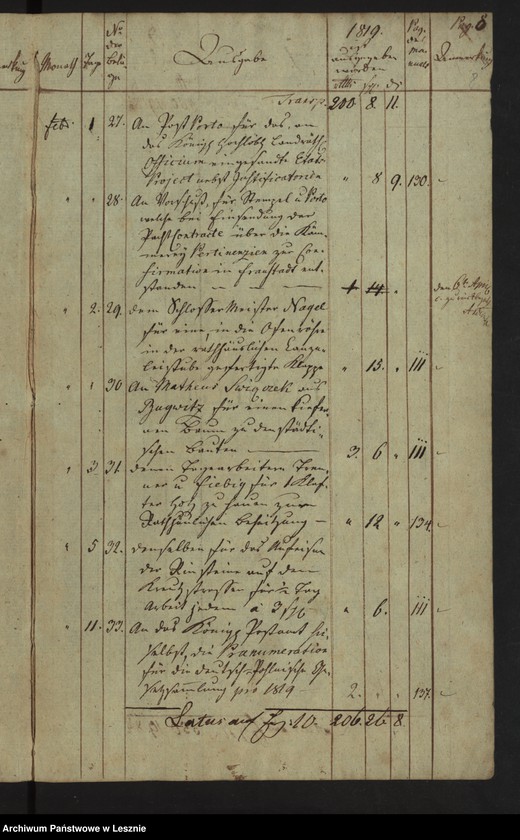 Pag. 8
Monath
Tag
No
der
Belä-
ge
Ausgabe
1819.
ist
ausgegeben
worden
rtlr sgr. d.
Pag.
des
Ma-
nuals
Bemerkung
Transp. 200. 8. 11.
Feb. 1. 27. An Post Porto für das, an
das Königl. Hochlöbl. Landräthl.
Officium eingesandte Etats
Project nebst Justificatorien " 8 9. 130.
" " 28. An Vorschuß, für Stempel u Porto
welche bei Einsendung der
Pacht Contracte über die Käm-
merey Pertinenzien zur Con-
firmation in Fraustadt ent-
standen
" 2. 29. dem Schlosser Meister Nagel
für eine, in die Ofenröhre
in der rathhäuslichen Canze-
leistube gefertigte Klappe " 15. " 111
" " 30 An Matheus aus
für einen kiefer-
nen Baum zu den städti-
schen Bauten 3. 6 " 111
" 3. 31. denen Tagearbeitern
ner u Fiebig für 1 Klaf-
ter Holz zu hauen zur
Rathhäuslichen Beheitzung " 12 " 134.
" 5 32. denselben für das Aufeisen
der Rinsteine auf den
für ½ Tag
Arbeit jedem a 3 sgr " 6. 111
" 11. 33. An das Königl Postamt hie-
selbst, die Pränumeration
für die deutsch-Pohlnische Ge-
setzsammlung pro 1819 2. " " 137.
Latus auf Pag. 10. 206. 26 8
Archiwum Państwowe w Lesznie